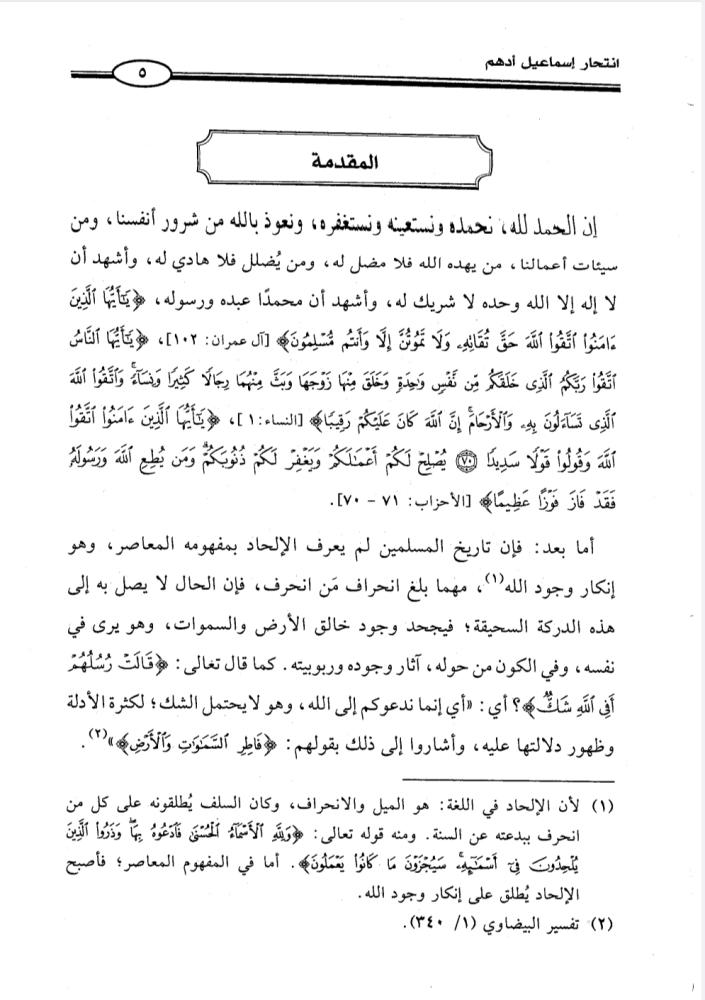 انتحار إسماعيل أدهم
٥
المقدمة
إن الحمد لله، نحمده ونستعينه ونستغفره، ونعوذ بالله من شرور أنفسنا، ومن
سيئات أعمالنا، من يهده الله فلا مضل له، ومن يُضلل فلا هادي له، وأشهد أن
لا إله إلا الله وحده لا شريك له، وأشهد أن محمدًا عبده ورسوله، ﴿يَٰٓأَيُّهَا ٱلَّذِينَ
ءَامَنُوا۟ ٱتَّقُوا۟ ٱللَّهَ حَقَّ تُقَاتِهِۦ وَلَا تَمُوتُنَّ إِلَّا وَأَنتُم مُّسْلِمُونَ﴾ [آل عمران: ١٠٢]، ﴿يَٰٓأَيُّهَا ٱلنَّاسُ
ٱتَّقُوا۟ رَبَّكُمُ ٱلَّذِى خَلَقَكُم مِّن نَّفْسٍ وَٰحِدَةٍ وَخَلَقَ مِنْهَا زَوْجَهَا وَبَثَّ مِنْهُمَا رِجَالًا كَثِيرًا وَنِسَآءً ۚ وَٱتَّقُوا۟ ٱللَّهَ
ٱلَّذِى تَسَآءَلُونَ بِهِۦ وَٱلْأَرْحَامَ ۚ إِنَّ ٱللَّهَ كَانَ عَلَيْكُمْ رَقِيبًا﴾ [النساء: ١]، ﴿يَٰٓأَيُّهَا ٱلَّذِينَ ءَامَنُوا۟ ٱتَّقُوا۟
ٱللَّهَ وَقُولُوا۟ قَوْلًا سَدِيدًا ٧٠ يُصْلِحْ لَكُمْ أَعْمَٰلَكُمْ وَيَغْفِرْ لَكُمْ ذُنُوبَكُمْ ۗ وَمَن يُطِعِ ٱللَّهَ وَرَسُولَهُۥ
فَقَدْ فَازَ فَوْزًا عَظِيمًا﴾ [الأحزاب: ٧١ - ٧٠].
أما بعد: فإن تاريخ المسلمين لم يعرف الإلحاد بمفهومه المعاصر، وهو
إنكار وجود الله(١)، مهما بلغ انحراف مَن انحرف، فإن الحال لا يصل به إلى
هذه الدركة السحيقة؛ فيجحد وجود خالق الأرض والسموات، وهو يرى في
نفسه، وفي الكون من حوله، آثار وجوده وربوبيته. كما قال تعالى: ﴿قَالَتْ رُسُلُهُمْ
أَفِى ٱللَّهِ شَكٌّ﴾؟ أي: «أي إنما ندعوكم إلى الله، وهو لايحتمل الشك؛ لكثرة الأدلة
وظهور دلالتها عليه، وأشاروا إلى ذلك بقولهم: ﴿فَاطِرِ ٱلسَّمَٰوَٰتِ وَٱلْأَرْضِ﴾»(٢).
(١) لأن الإلحاد في اللغة: هو الميل والانحراف، وكان السلف يُطلقونه على كل من
انحرف ببدعته عن السنة. ومنه قوله تعالى: ﴿وَلِلَّهِ ٱلْأَسْمَآءُ ٱلْحُسْنَىٰ فَٱدْعُوهُ بِهَا ۖ وَذَرُوا۟ ٱلَّذِينَ
يُلْحِدُونَ فِىٓ أَسْمَٰٓئِهِۦ ۚ سَيُجْزَوْنَ مَا كَانُوا۟ يَعْمَلُونَ﴾. أما في المفهوم المعاصر؛ فأصبح
الإلحاد يُطلق على إنكار وجود الله.
(٢) تفسير البيضاوي (١/ ٣٤٠).